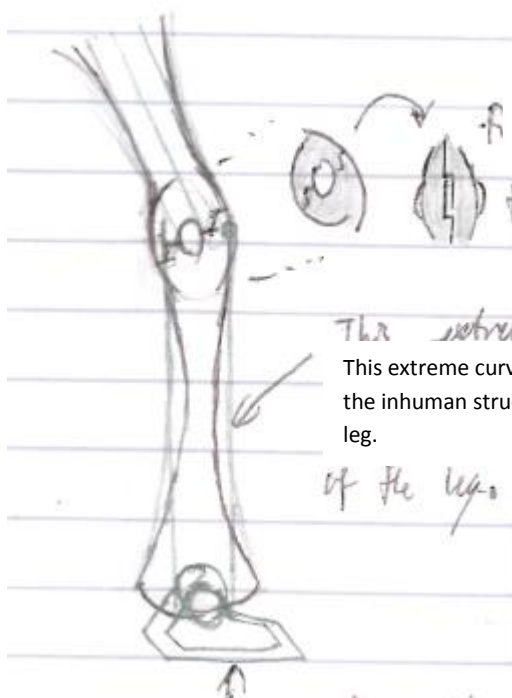 This extre
This extreme curv
the inhuman stru
leg.
of the leg.